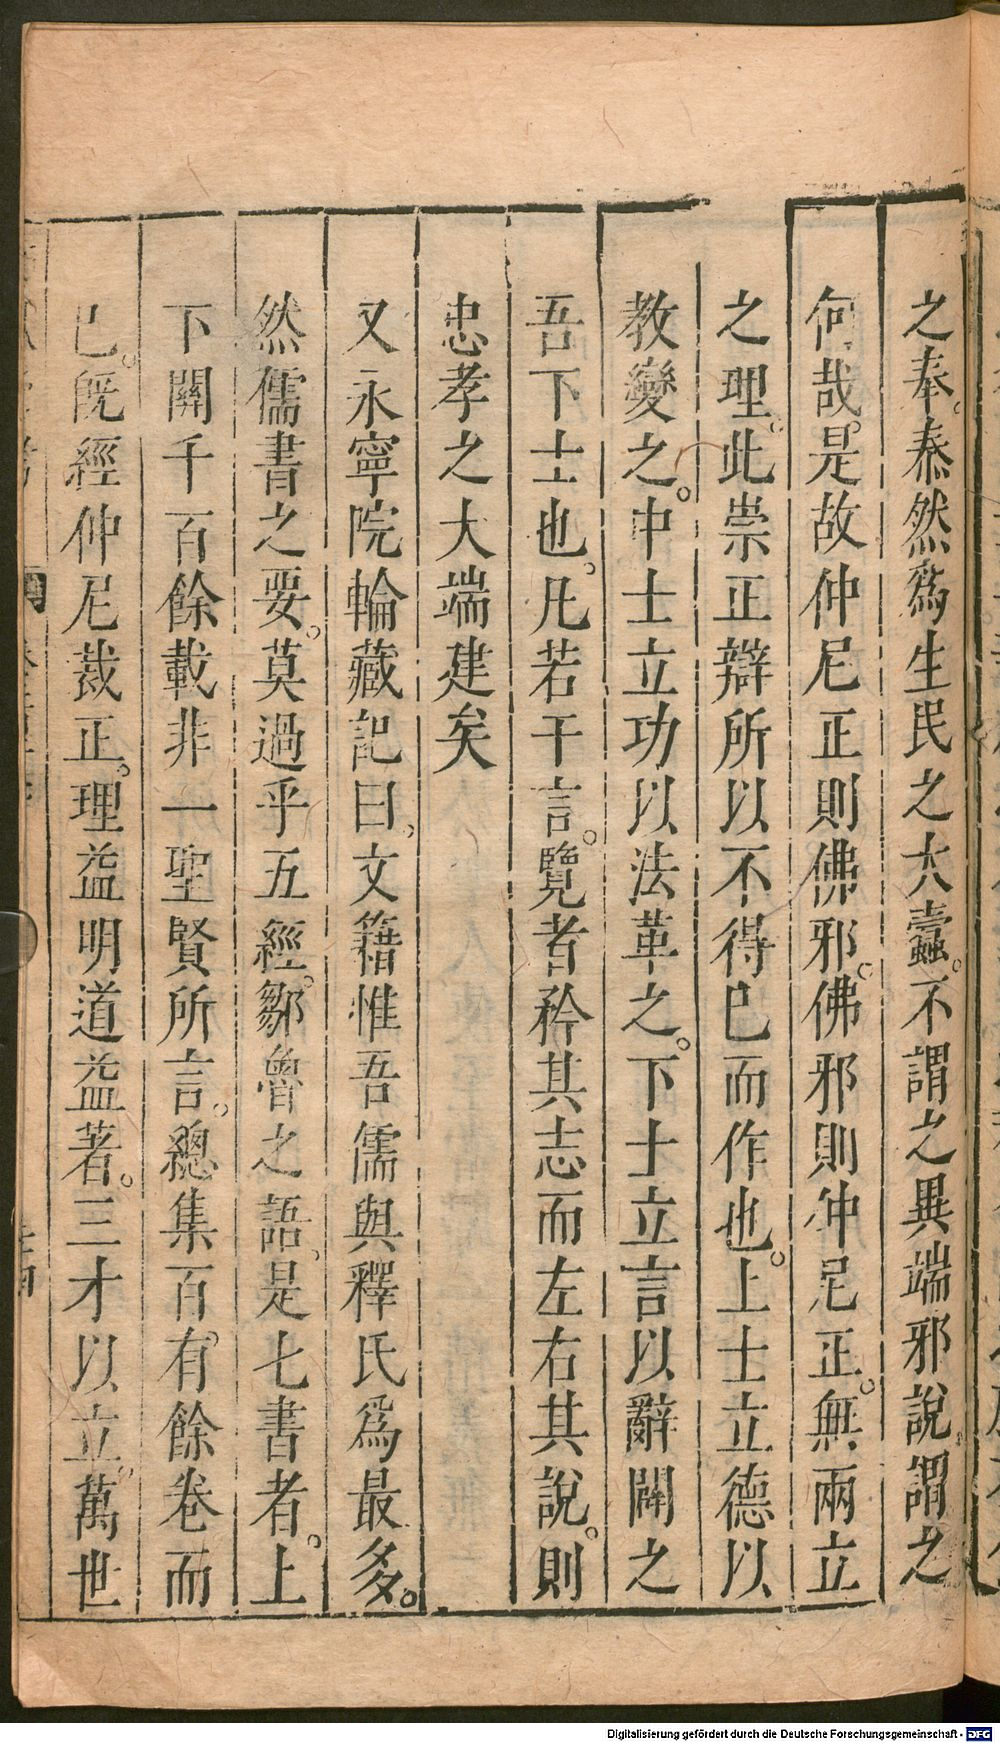 之奉。恭然爲生民之大蠹。不謂之異端邪說。謂之
何哉。是故仲尼正則佛邪。佛邪則仲尼正。無兩立
之理。此崇正辯所以不得已而作也。上士立德以
教變之。中士立功以法革之。下士立言以辭闢之
吾下士也。凡若干言。覽者矜其志而左右其說。則
忠孝之大端建矣
又永寧院輪藏記曰。文籍惟吾儒與釋氏爲最多。
然儒書之要。莫過乎五經。鄒魯之語。是七書者。上
下關千百餘載非一聖賢所言。總集百有餘卷而
已。旣經仲尼裁正。理益明道益著。三才以立。萬世
Digitalisierung gefördert durch die Deutsche Forschungsgemeinschaft - DFG